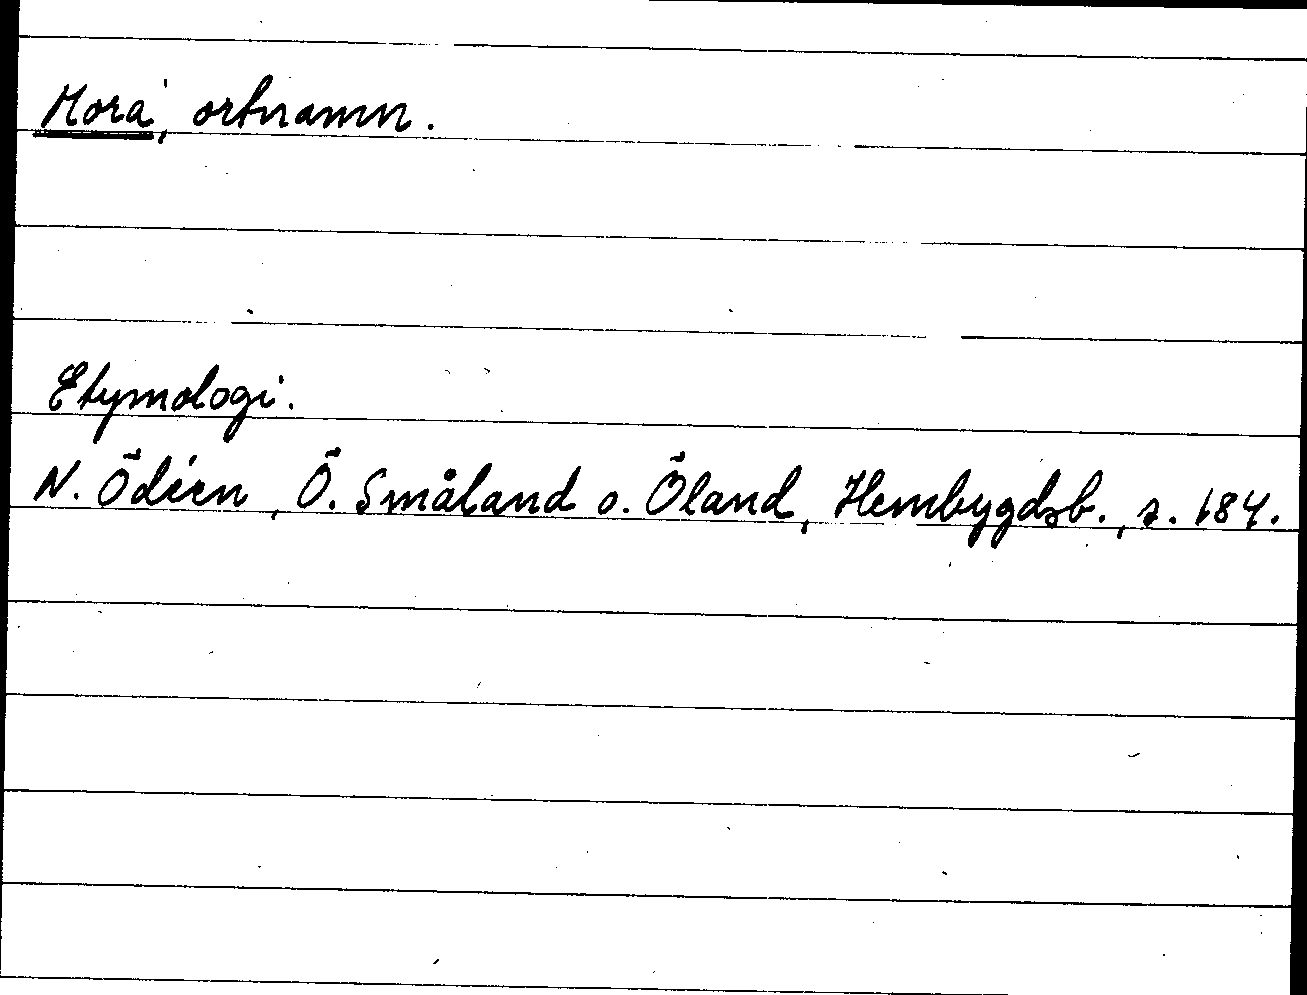 Mora, ortnamn.
Etymologi.
N. Ödéen, Ö. Småland o. Öland, Hembygdsb., s. 684.